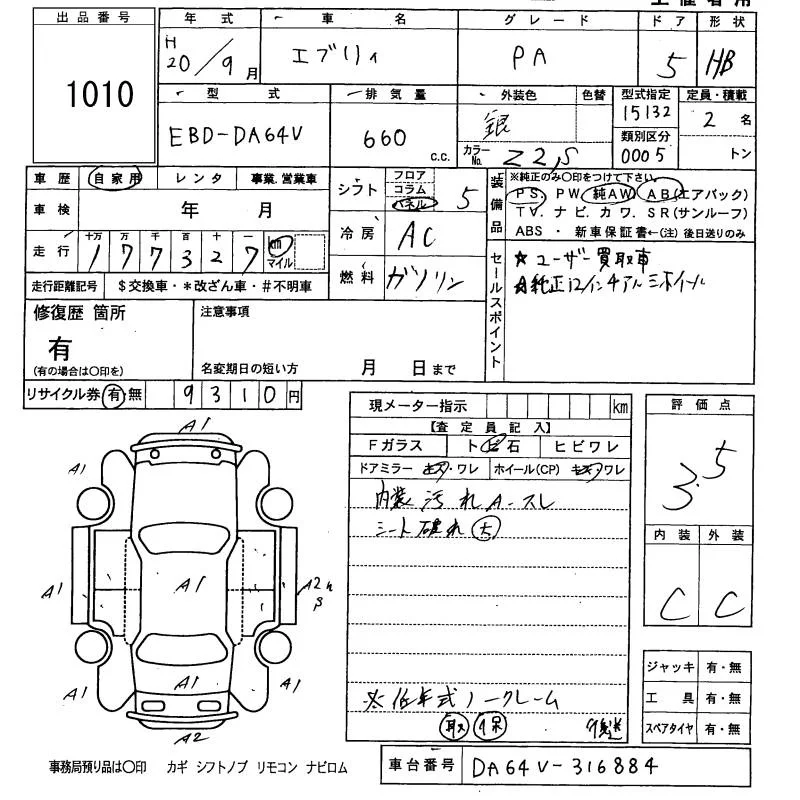 出品番号
1010
年式
H
20/9月
車名
エブリィ
グレード
PA
ドア
5
形状
HB
型式
EBD-DA64V
排気量
660
c.c.
外装色 色替
銀
カラーNo. Z2S
型式指定
15132
類別区分
0005
定員・積載
2名
トン
車歴 自家用 レンタ 事業.営業車
車検 年 月
走行 十万 万 千 百 十 一 km マイル
1 7 7 3 2 7
走行距離記号 $交換車・*改ざん車・#不明車
シフト フロア コラム パネル 5
冷房 AC
燃料 ガソリン
装備品
※純正のみ〇印をつけて下さい。
PS. PW. 純AW. AB(エアバック)
TV. ナビ. カワ. SR(サンルーフ)
ABS ・ 新車保証書←(注) 後日送りのみ
セールスポイント
★ユーザー買取車
★純正12インチアルミホイール
修復歴 箇所
有
(有の場合は〇印を)
注意事項
名変期日の短い方 月 日まで
リサイクル券 有・無 9310円
現メーター指示 km
【査定員記入】
Fガラス トビ石 ヒビワレ
ドアミラー キズ・ワレ ホイール(CP) キズ・ワレ
内装 汚れ A-スレ
シート破れ
※低年式ノークレーム
取 保 後送
評価点
3.5
内装 外装
C C
ジャッキ 有・無
工具 有・無
スペアタイヤ 有・無
A1
A1 A1
A1 A1 A2
A1 A1 A1
A2
事務局預り品は〇印 カギ シフトノブ リモコン ナビロム
車台番号 DA64V-316884